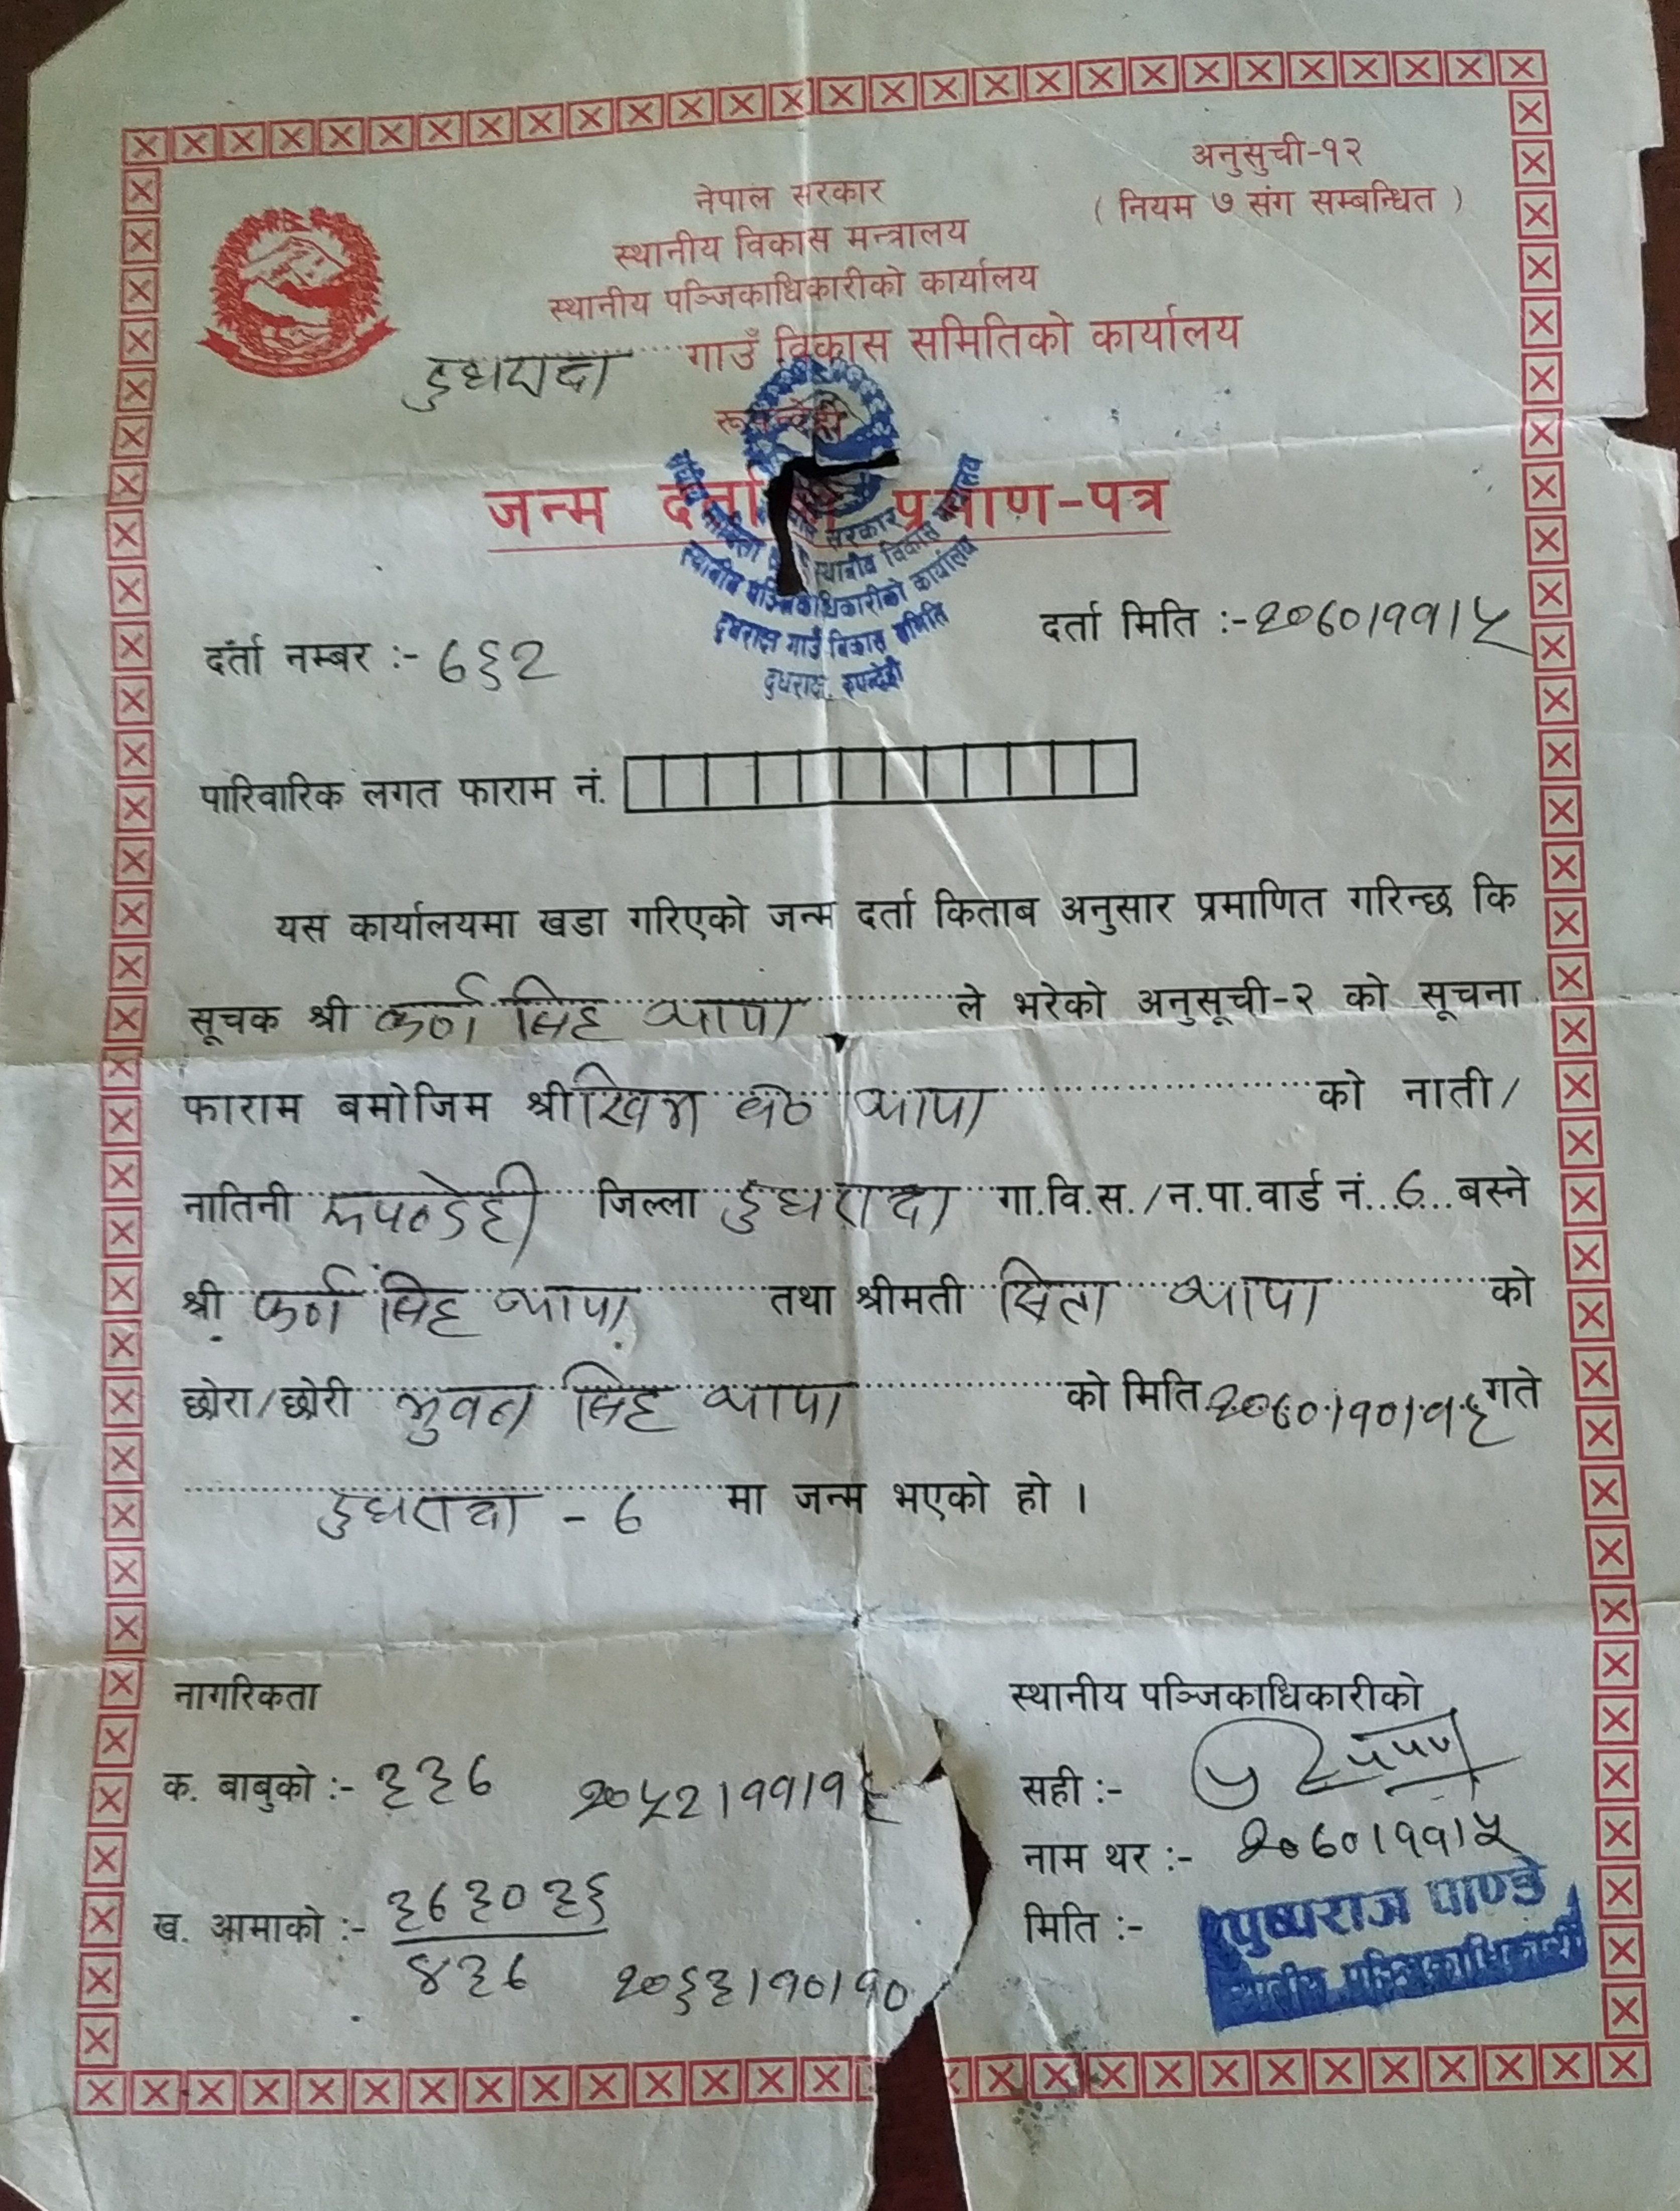 अनुसुची-१२
( नियम ७ संग सम्बन्धित )
नेपाल सरकार
स्थानीय विकास मन्त्रालय
स्थानीय पञ्जिकाधिकारीको कार्यालय
दुधराक्ष गाउँ विकास समितिको कार्यालय
रूपन्देही
जन्म दर्ताको प्रमाण-पत्र
सरकार
स्थानीय विकास
स्थानीय पञ्जिकाधिकारीको कार्यालय
दुधराक्ष गाउँ विकास समिति
दुधराक्ष, रुपन्देही
दर्ता नम्बर :- ७६२
दर्ता मिति :- २०७०।११।५
पारिवारिक लगत फाराम नं.
यस कार्यालयमा खडा गरिएको जन्म दर्ता किताब अनुसार प्रमाणित गरिन्छ कि
सूचक श्री कर्ण सिंह थापा ले भरेको अनुसूची-२ को सूचना
फाराम बमोजिम श्री खिम ब० थापा को नाती/
नातिनी रूपन्देही जिल्ला दुधराक्ष गा.वि.स./न.पा.वार्ड नं. ७ बस्ने
श्री कर्ण सिंह थापा तथा श्रीमती सिता थापा को
छोरा/छोरी भुवन सिंह थापा को मिति २०७०।१०।१६ गते
दुधराक्ष - ७ मा जन्म भएको हो ।
नागरिकता
स्थानीय पञ्जिकाधिकारीको
क. बाबुको :- ३३७ २०५२।११।१
सही :-
नाम थर :- २०७०।११।५
ख. आमाको :- ३७३०३६
४३७ २०६३।१०।१०
मिति :-
पुष्पराज पाण्डे
स्थानीय पञ्जिकाधिकारी